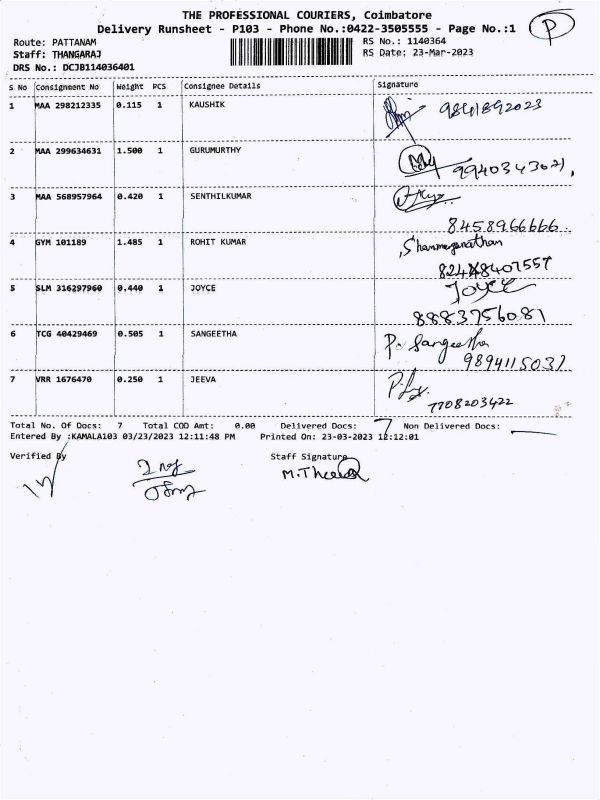 THE PROFESSIONAL COURIERS, Coimbatore
Delivery Runsheet - P103 - Phone No.:0422-3505555 - Page No.:1
P
Route: PATTANAM
RS No.: 1140364
Staff: THANGARAJ
RS Date: 23-Mar-2023
DRS No.: DCJB114036401
S No Consignment No Weight PCS Consignee Details Signature
1 MAA 298212335 0.115 1 KAUSHIK
2 MAA 299634631 1.500 1 GURUMURTHY
9940343021,
3 MAA 568957964 0.420 1 SENTHILKUMAR
8458966666
4 GYM 101189 1.485 1 ROHIT KUMAR
Shanmuganathan
5 SLM 316297960 0.440 1 JOYCE Joyce
8883756081
6 TCG 40429469 0.505 1 SANGEETHA P. Sangeetha
9894115031
7 VRR 1676470 0.250 1 JEEVA
7708203422
Total No. Of Docs: 7 Total COD Amt: 0.00 Delivered Docs: 7 Non Delivered Docs:
Entered By :KAMALA103 03/23/2023 12:11:48 PM Printed On: 23-03-2023 12:12:01
Verified By Staff Signature